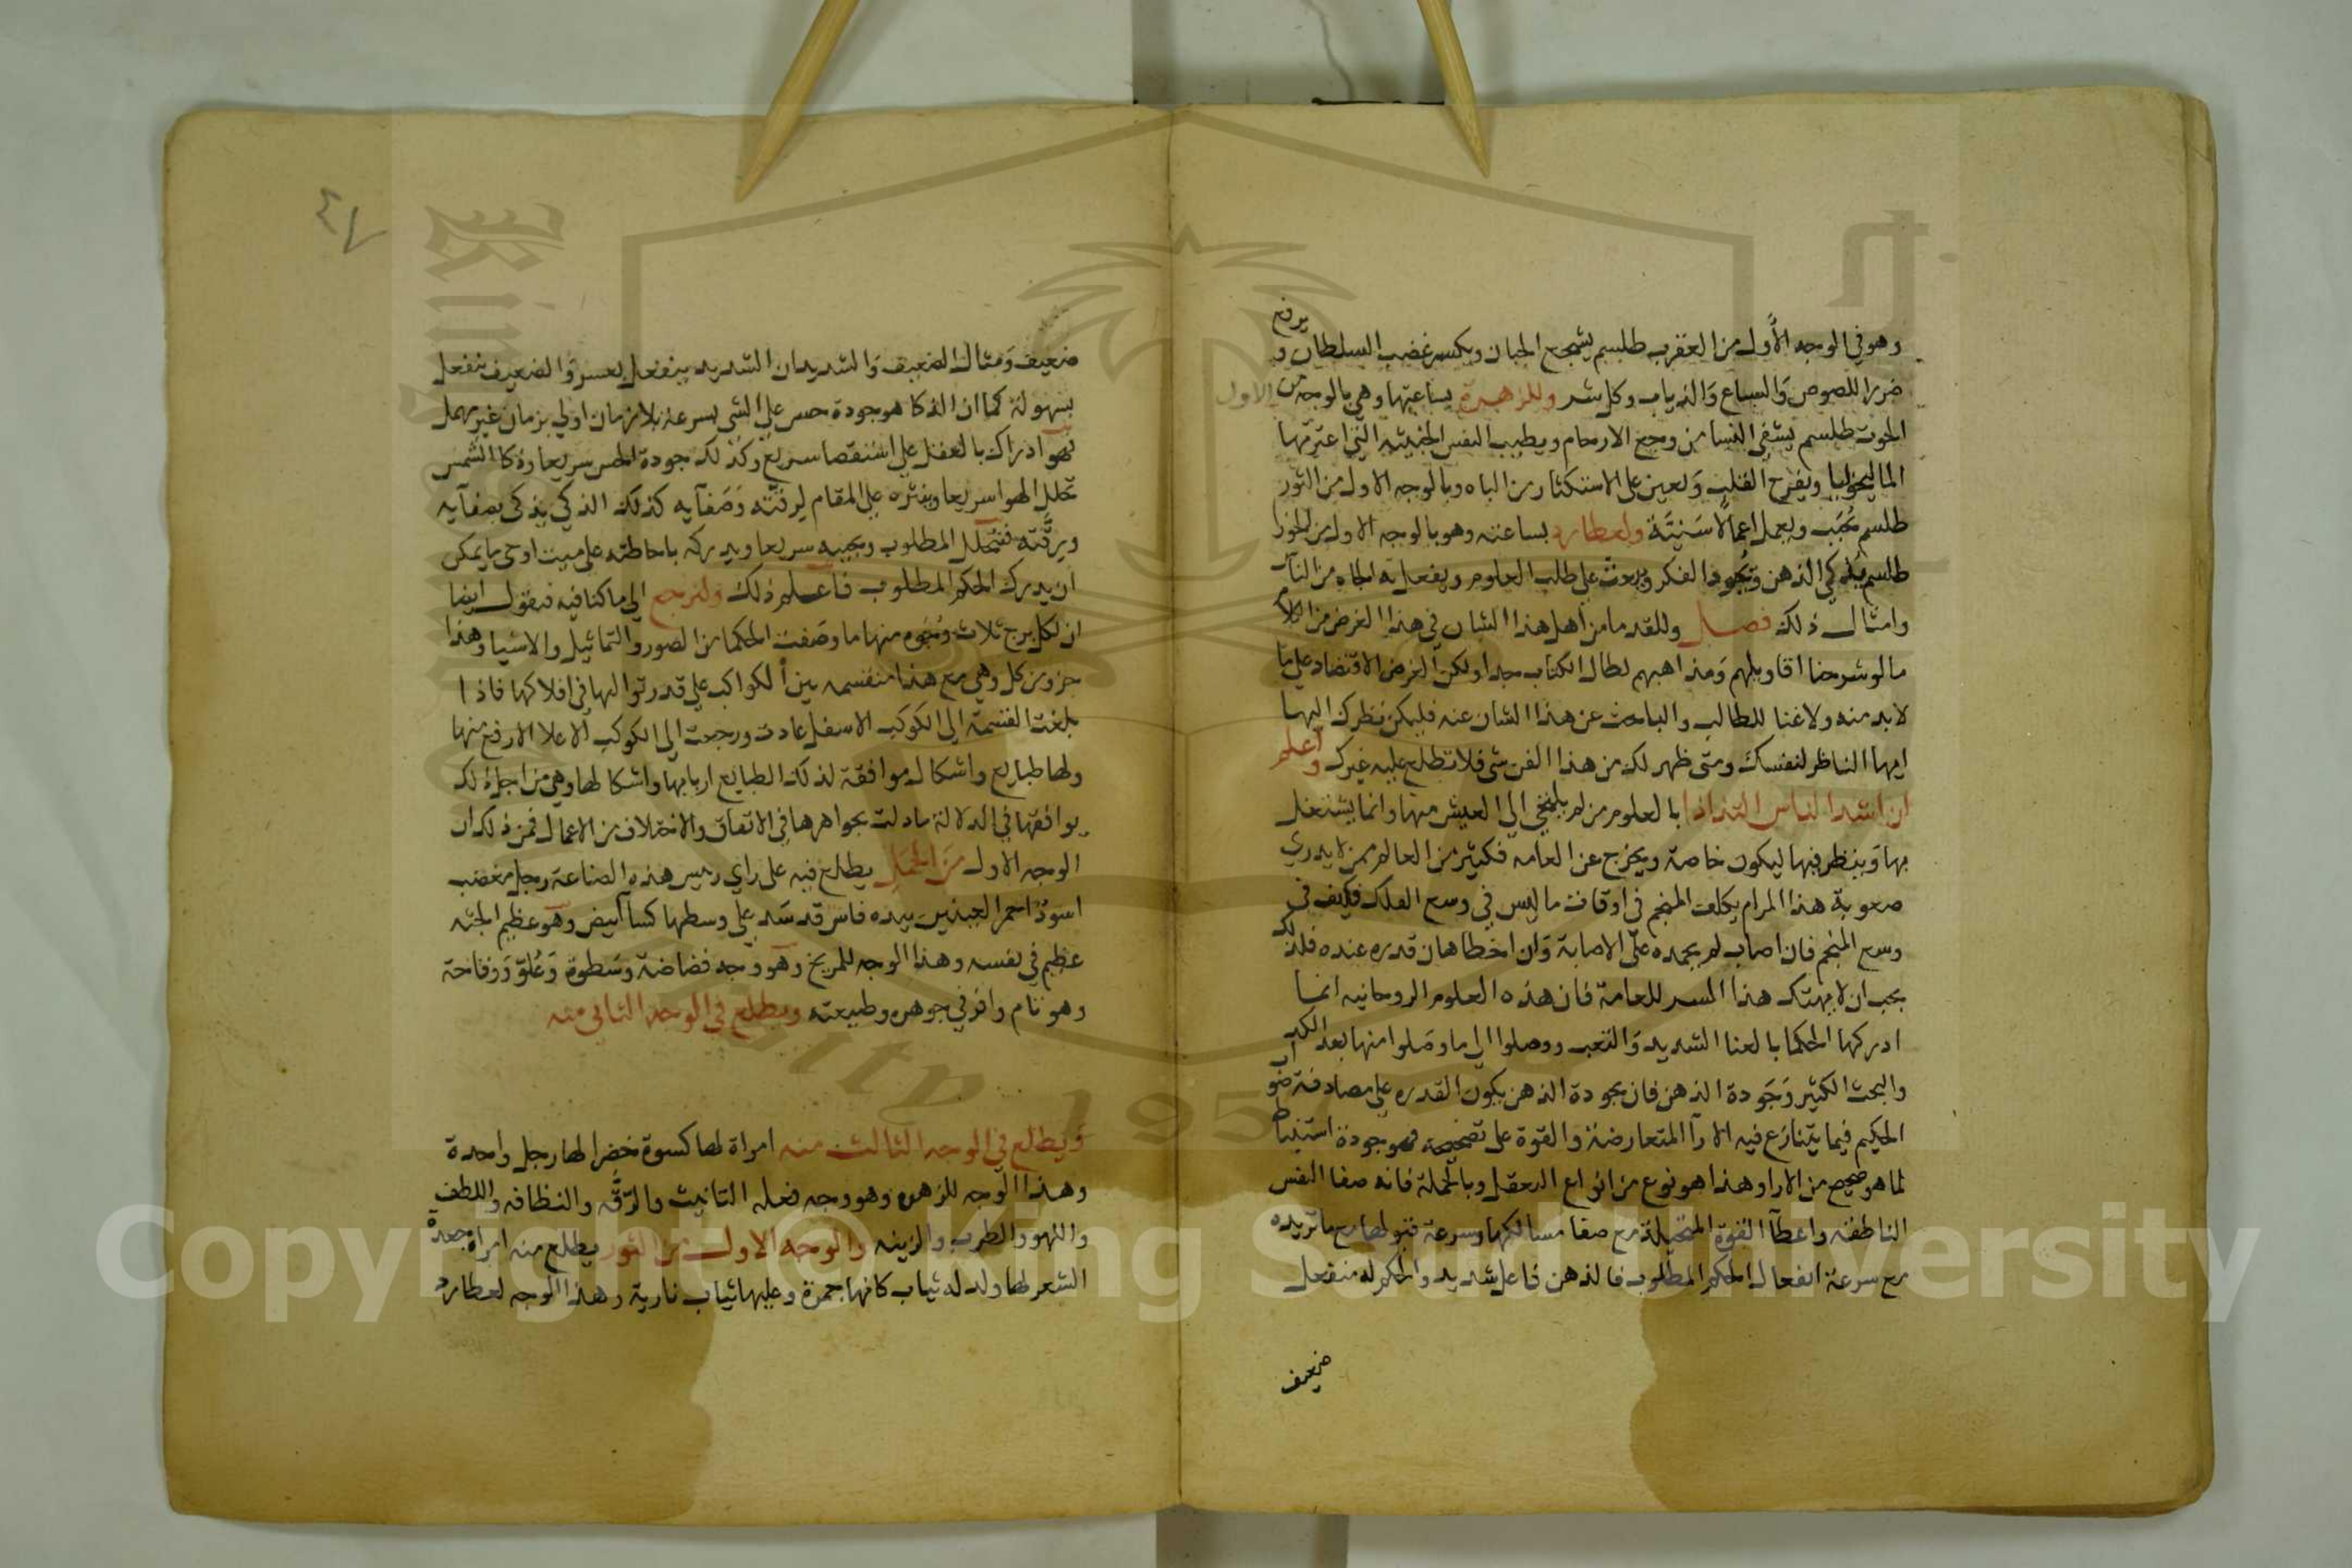 وهو في الوجه الأول من العقرب طلسم يشجع الجبان ويكسر غضب السلطان و يدفع
ضرر اللصوص والسباع والذياب وكل شر وللزهرة بساعتها وهي بالوجه الاول من
الحوت طلسم يشفي النسا من وجع الارحام ويطيب النفس الخبيثه التي اعترتها
الماليخوليا ويفرح القلب ويعين على الاستكثار من الباه وبالوجه الاول من الثور
طلسم ويعمل اعمالا سنية ولعطارد بساعته وهو بالوجه الاول من الجوزا
طلسم يذكي الذهن ويجود الفكر ويبعث على طلب العلوم ويفعل به الجاه من الناس
وامثال ذلك فصل وللقدما من أهل هذا الشان في هذا الغرض من الكلام
ما لو شرحنا اقاويلهم ومذاهبهم لطال الكتاب جدا ولكن الغرض الاقتصاد على ما
لا بد منه ولا غنا للطالب والباحث عن هذا الشان عنه فليكن نظرك اليها
ايها الناظر لنفسك ومتى ظهر لك من هذا الفن شي فلا تطلع عليه غيرك واعلم
ان اشد الناس التذاذا بالعلوم من لم يلتجي الي العيش منها وانما يشتغل
بها وينظر فيها ليكون خاصة ويخرج عن العامه فكثير من العالم ممن لا يدري
صعوبة هذا المرام يكلف المنجم في اوقات ما ليس في وسع الفلك فكيف في
وسع المنجم فان اصاب لم يحمده على الاصابة وان اخطا هان قدره عنده فلذلك
يجب ان لا يهتك هذا السر للعامة فان هذه العلوم الروحانيه انما
ادركها الحكما بالعنا الشديد والتعب ووصلوا الي ما وصلوا منها بعد الكد
والبحث الكثير وجودة الذهن فان بجودة الذهن يكون القدره على مصادفة صواب
الحكيم فيما يتنازع فيه الارآ المتعارضة والقوة على تصحيحه فهو جودة استنباط
لما هو صحيح من الارا وهذا هو نوع من انواع التعقل وبالجملة فانه صفا النفس
الناطقه واعطآ القوة المتخيلة مع صفا مسالكها وسرعة قبولها مع ما تريده
مع سرعة انفعال الحكم المطلوب فالذهن فاعل شديد والحكم له منفعل
ضعيف
٤٧
ضعيف ومثال الضعيف والشديد ان الشديد ينفعل بعسر والضعيف ينفعل
بسهولة كما ان الذكا هو جودة حدس على الشي بسرعة بلا زمان او في بزمان غير مهمل
فهو ادراك بالعقل على استقصا سريع وكذلك جودة الحس سريعا وذكا الشمس
تحلل الهوا سريعا وينثره على المقام لرقته وصفآيه كذلك الذكي يذكى بصفآيه
ورقته فتحلل المطلوب ويجيبه سريعا ويدركه باحاطته على ميت او حى ما يمكن
ان يدرك الحكم المطلوب فاعلم ذلك ولنرجع الي ما كنا فيه فنقول ايضا
ان لكل برج ثلاث وجوه منها ما وصفت الحكما من الصور والتماثيل والاشيا وهذا
جزو من كل وهي مع هذا منقسمه بين الكواكب على قدر تواليها في افلاكها فاذا
بلغت القسمة الى الكوكب الاسفل عادت ورجعت الى الكوكب الاعلا الارفع منها
ولها طبايع واشكال موافقة لذلك الطبايع اربابها واشكالها وهي من اجل ذلك
يوافقها في الدلالة ما دلت بجواهرها في الاتفاق والاختلاف من الاعمال فمن ذلك ان
الوجه الاول من الحمل يطلع فيه على راي رئيس هذه الصناعة رجل مغضب
اسود احمر العينين بيده فاس قد شد على وسطها كسا ابيض وهو عظيم الجثه
عظيم في نفسه وهذا الوجه للمريخ وهو وجه فضاضة وسطوة وعلو ووقاحة
وهو تام وافر في جوهره وطبيعته ويطلع في الوجه الثاني منه
ويطلع في الوجه الثالث منه امراة لها كسوة خضرا لها رجل واحدة
وهذا الوجه للزهره وهو وجه فعله التانيث والرقه والنظافه واللطف
واللهو والطرب والزينه والوجه الاول من الثور يطلع منه امراة جعدة
الشعر لها ولد له ثياب كانها جمرة وعليها ثياب نارية وهذا الوجه لعطارد
Copyright © King Saud University